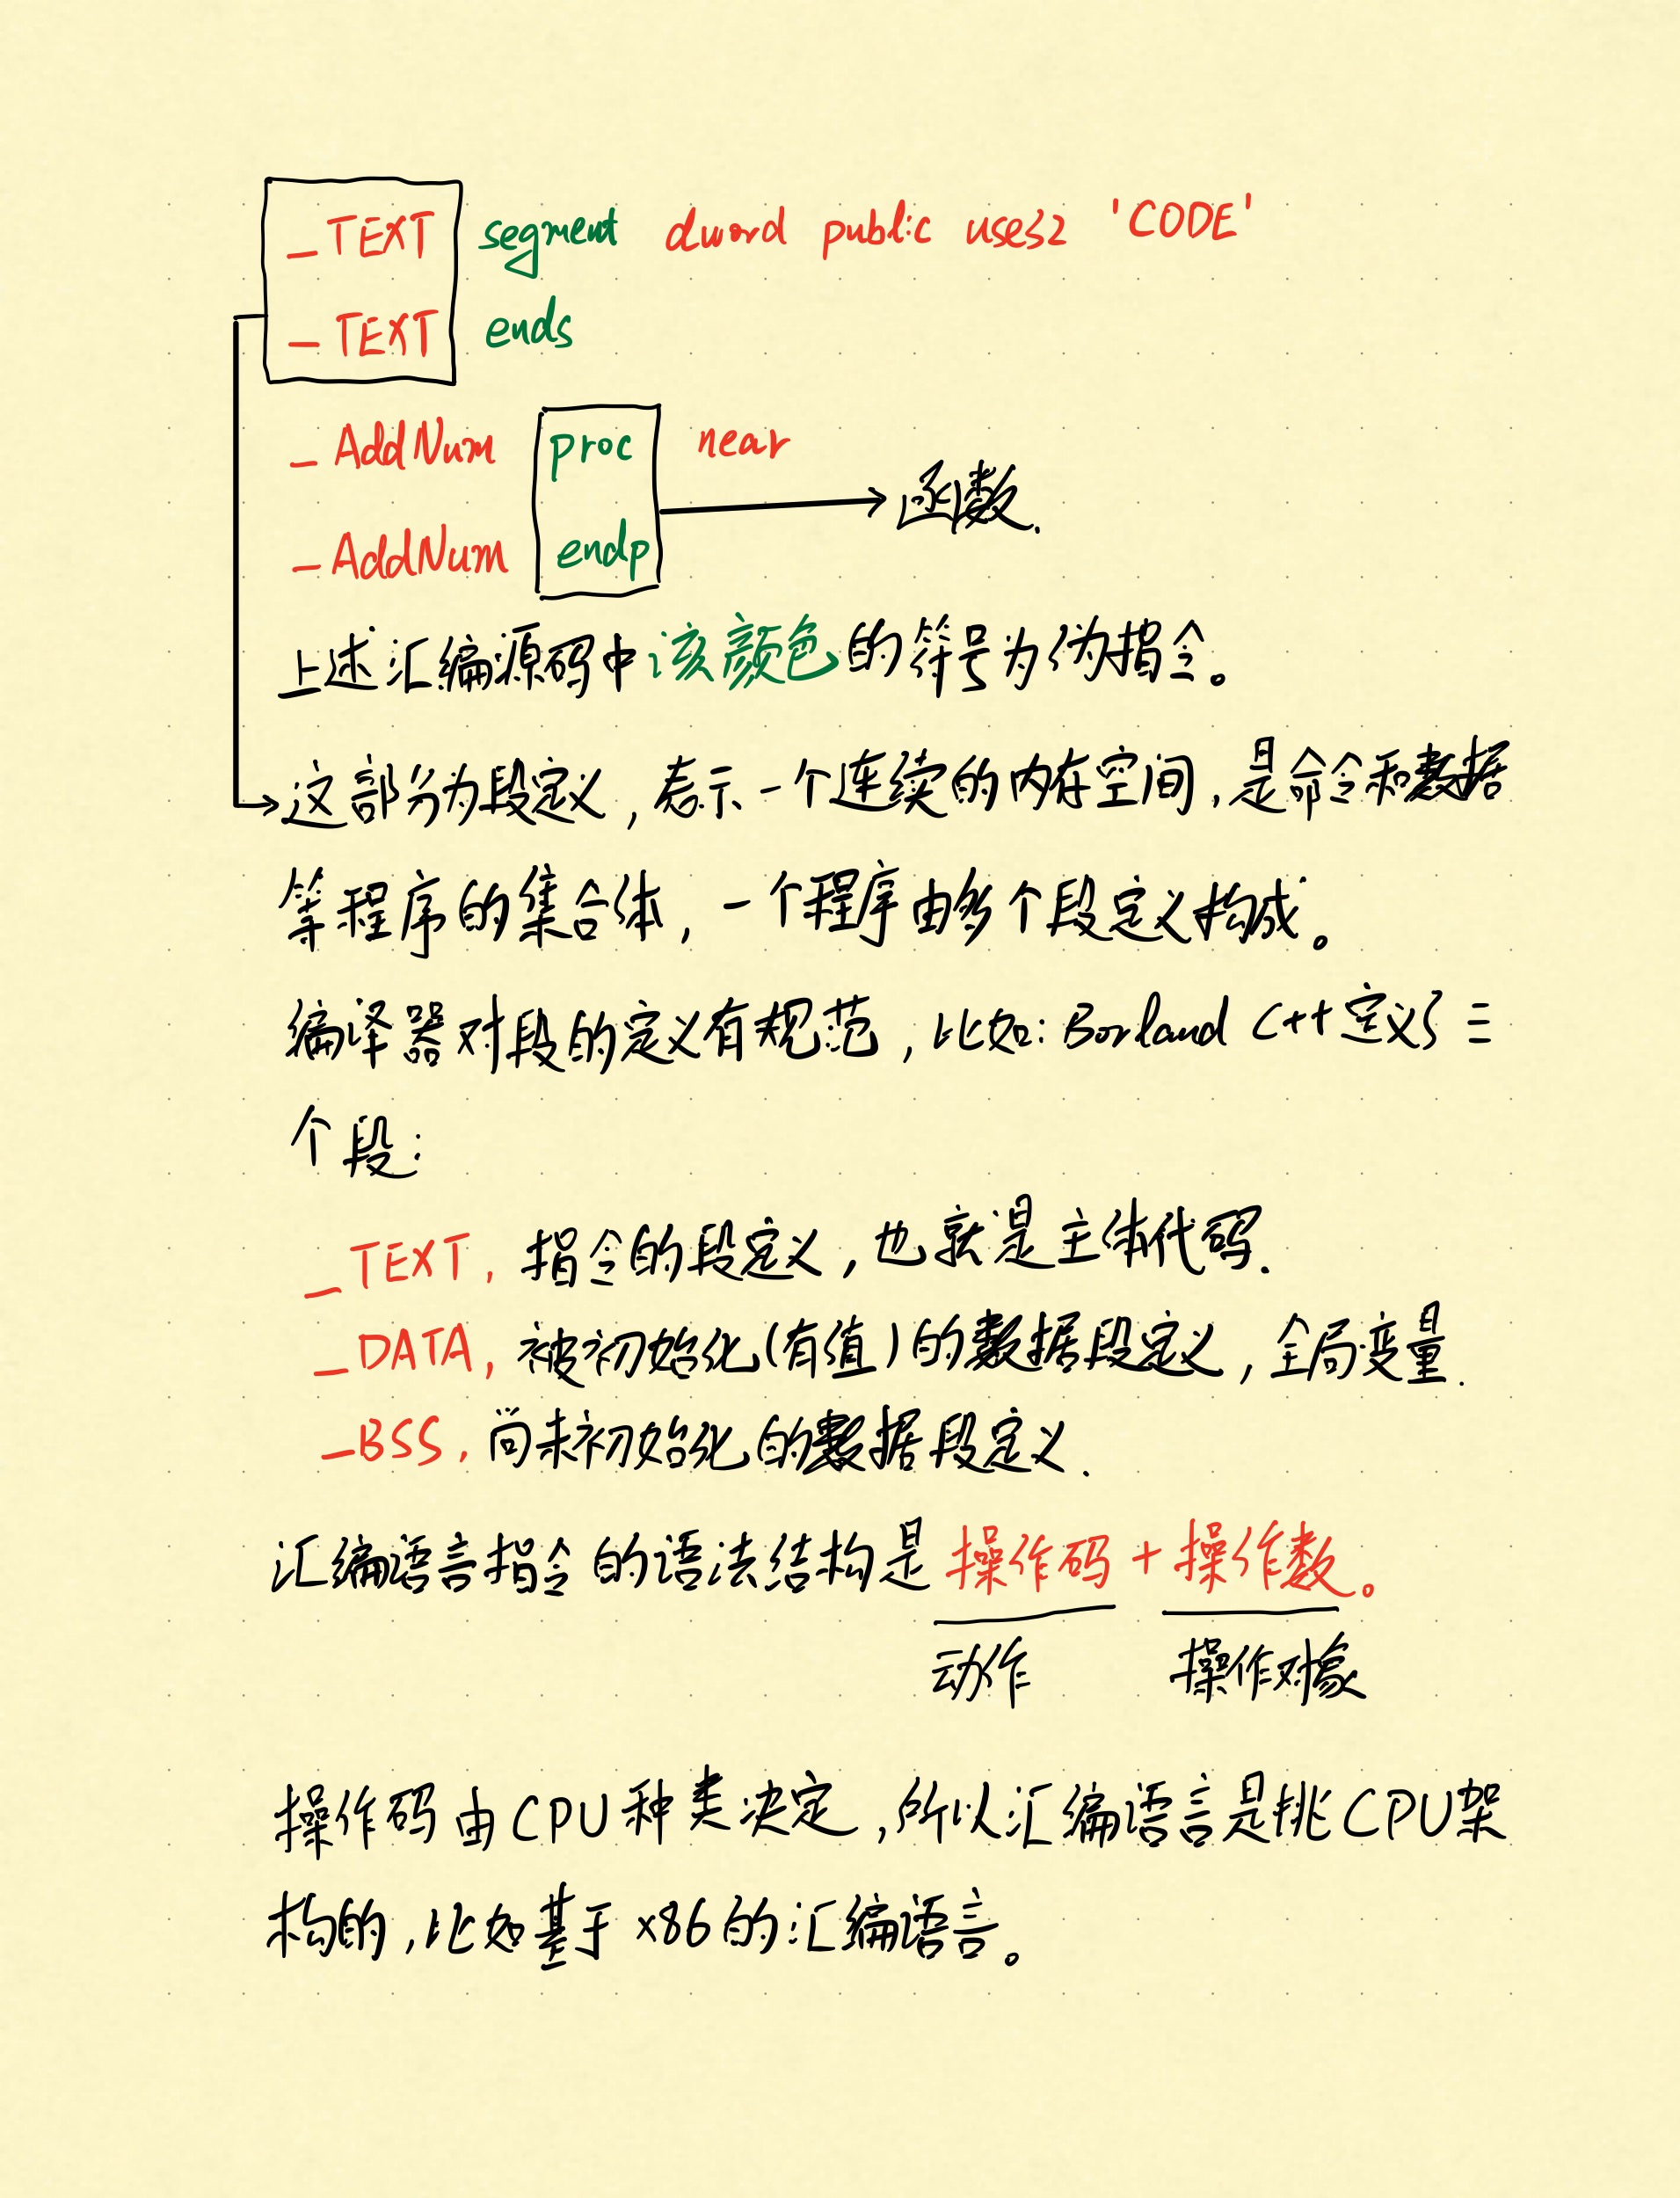 _TEXT segment dword public use32 'CODE'
_TEXT ends
_AddNum proc near
函数.
_AddNum endp
上述汇编源码中该颜色的符号为伪指令。
这部分为段定义,表示一个连续的内存空间,是命令和数据
等程序的集合体,一个程序由多个段定义构成。
编译器对段的定义有规范,比如:Borland C++定义了三
个段:
_TEXT,指令的段定义,也就是主体代码.
_DATA,被初始化(有值)的数据段定义,全局变量.
_BSS,尚未初始化的数据段定义.
汇编语言指令的语法结构是操作码+操作数。
动作 操作对象
操作码由CPU种类决定,所以汇编语言是挑CPU架
构的,比如基于x86的汇编语言。